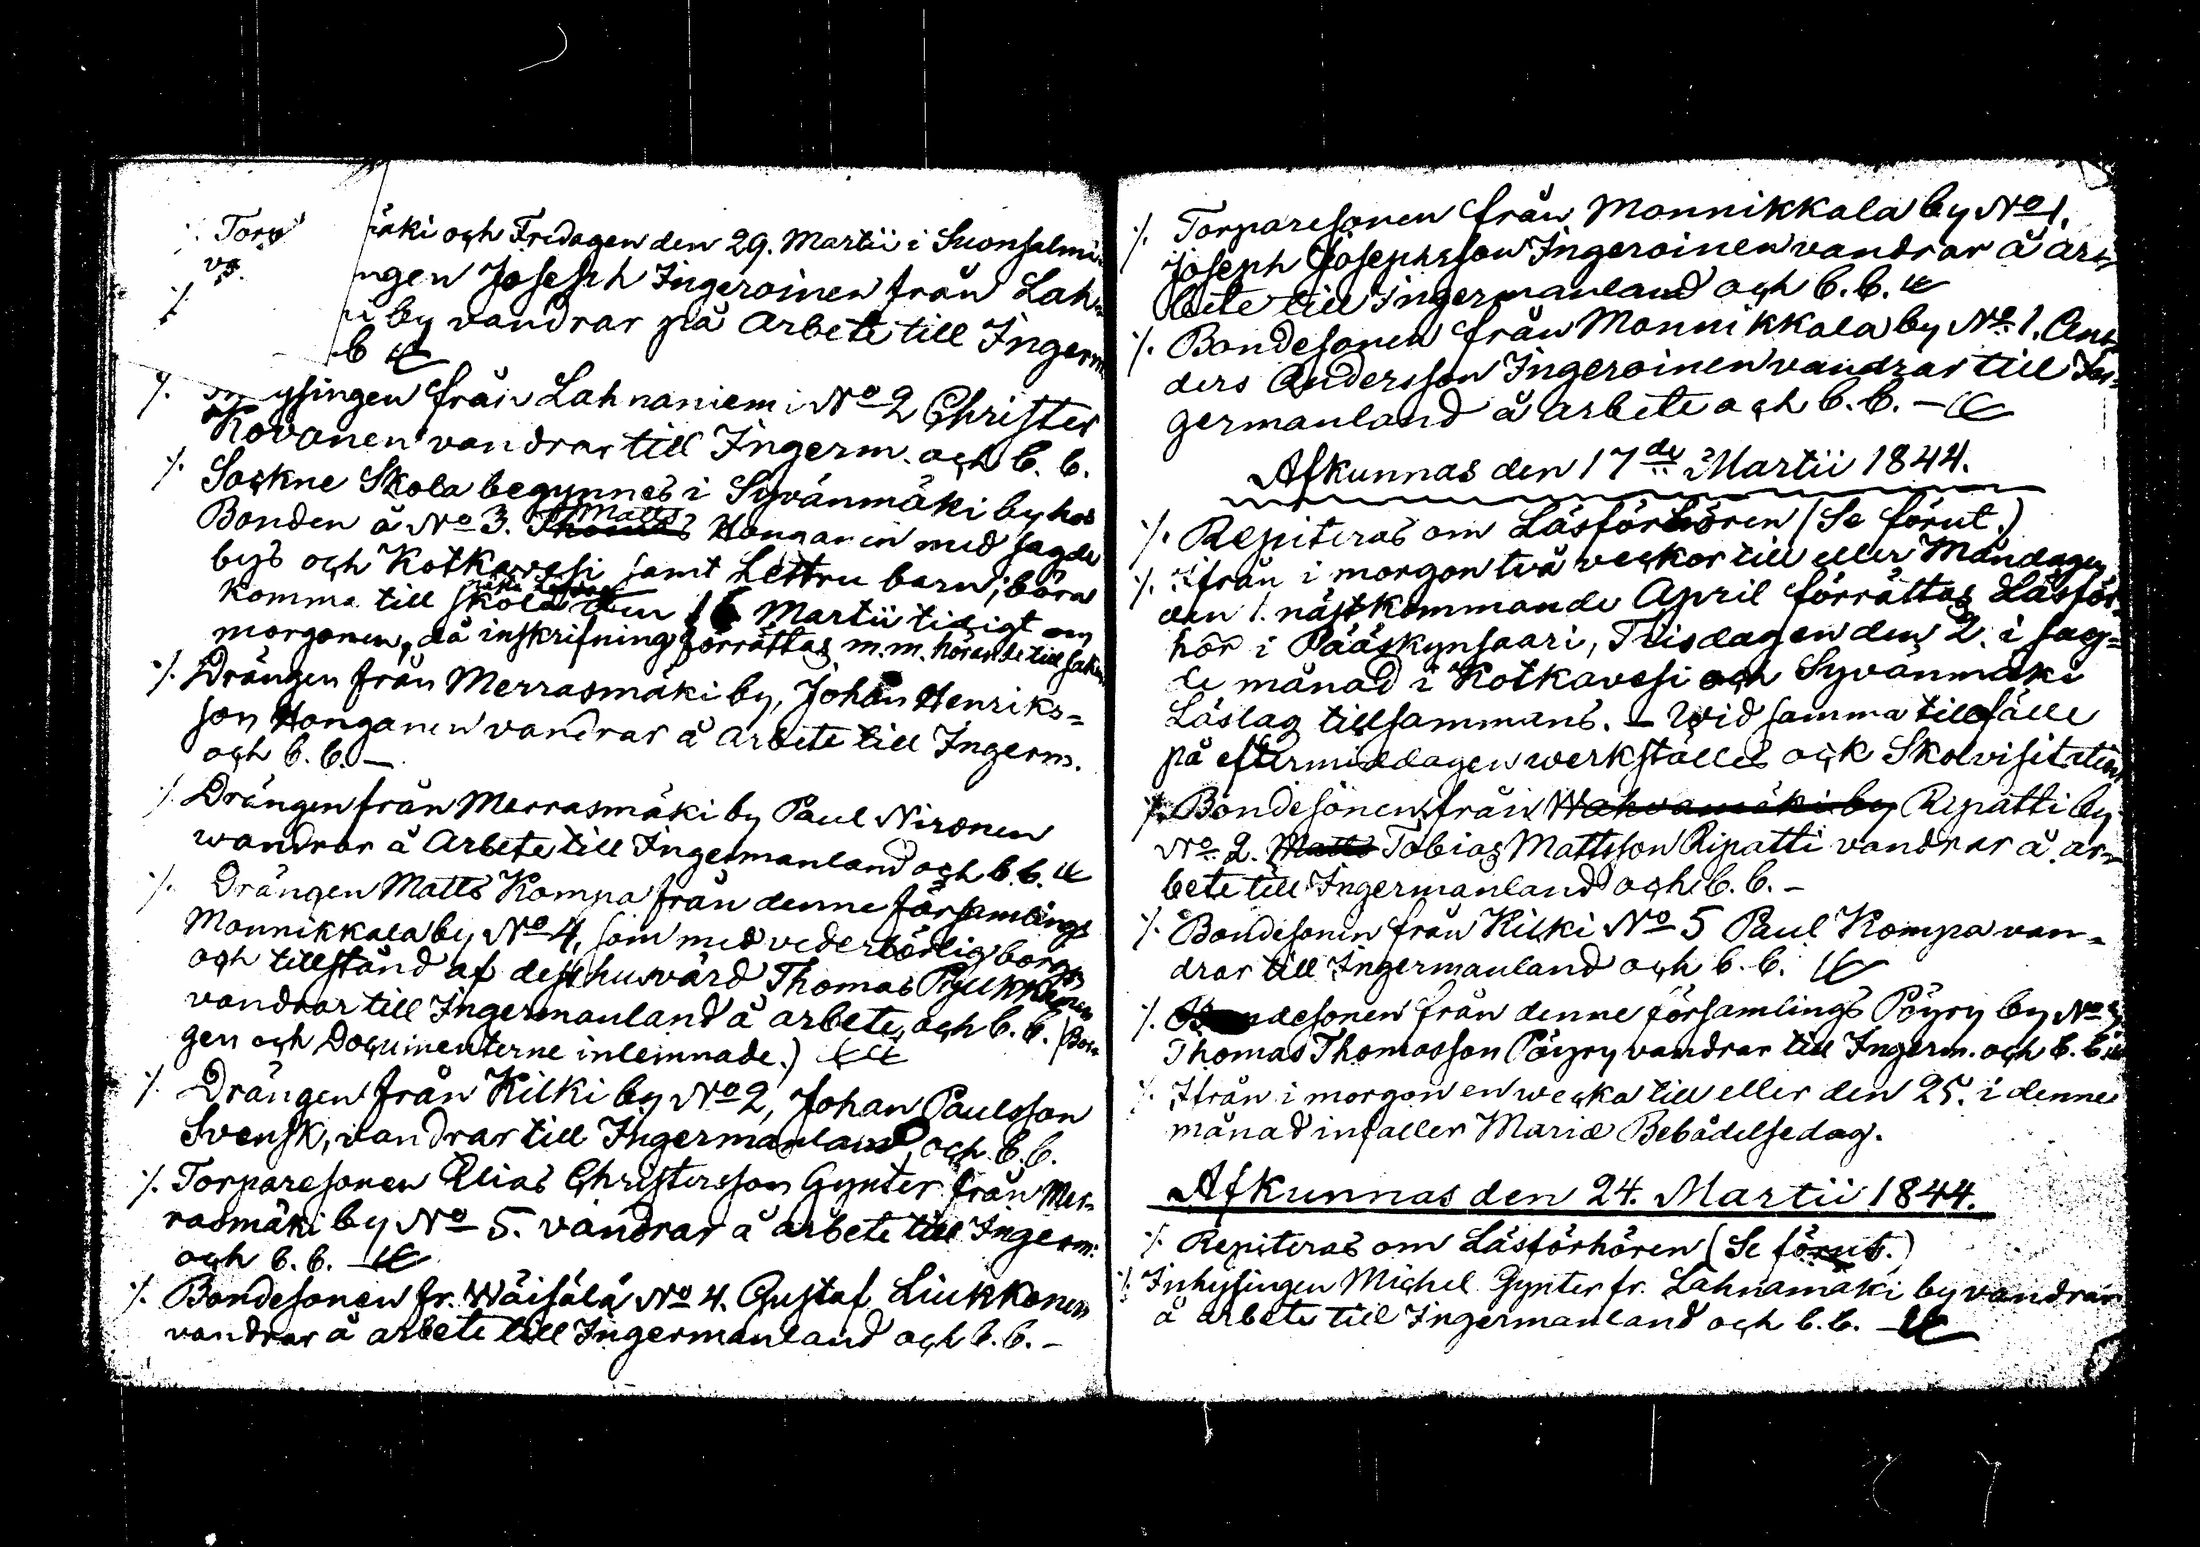 ⁒ Torp
va
⁒
äki och Fredagen den 29. Martii i Suonsalmi
ngen Joseph Ingeroinen från Lah-
i by vandrar på Arbete till Ingerm
b
⁒ ysingen från Lahnaniemi No 2 Christer
Kovanen vandrar till Ingerm. och b. b.
⁒ Sockne Skola begynnes i Syvänmäki by hos
Bonden å No 3. Thomas Matts Honganen med sagde
bys och Kotkavesi samt Lettru barn; böra
komma till skola den 16 Martii tidigt om
morgonen, då inskrifning förrättas m.m. hörande till saken
⁒ Drängen från Merrasmäki by, Johan Henriks-
son Honganen vandrar å arbete till Ingerm.
och b. b. —
⁒ Drängen från Merrasmäki by Paul Nironen
wandrar å Arbete till Ingermanland och b. b.
⁒ Drängen Matts Kompa från denne församlings
Monnikkala by No 4, som med vederbörlig borgen
och tillstånd af dess husvärd Thomas Pylkkänen
vandrar till Ingermanland å arbete, och b. b. (Bor-
gen och Documenterne inlemnade.)
⁒ Drängen från Kilki by No 2, Johan Paulsson
Svensk, vandrar till Ingermanland och b. b.
⁒ Torparesonen Elias Christersson Gynter från Mer-
rasmäki by No 5. vandrar å arbete till Ingerm.
och b. b. —
⁒ Bondesonen fr. Wäisälä No 4. Gustaf Liukkonen
vandrar å arbete till Ingermanland och b. b. —
⁒ Torparesonen från Monnikkala by No 1.
Joseph Josephsson Ingeroinen vandrar å ar-
bete till Ingermanland och b. b.
⁒ Bondesonen från Monnikkala by No 1. An-
ders Andersson Ingeroinen vandrar till In-
germanland å arbete och b. b. —
Afkunnas den 17de Martii 1844.
⁒ Repiteras om Läsförhören (Se förut.)
⁒ Ifrån i morgon två veckor till eller Måndagen
den 1. nästkommande April förrättas Läsför-
hör i Pääskynsaari, Tisdagen den 2. i sag-
de månad i Kotkavesi och Syvänmäki
Läslag tillsammans. — Wid samma tillfälle
på eftermiddagen werkställes ock Skolvisitation
⁒ Bondesonen från Wahvamäki by Ripatti by
No 2. Matts Tobias Mattsson Ripatti vandrar å ar-
bete till Ingermanland och b. b. —
⁒ Bondesonen från Kilki No 5 Paul Kompa van-
drar till Ingermanland och b. b.
⁒ Bondesonen från denne församlings Pöyry by No
Thomas Thomasson Pöyry vandrar till Ingerm. och b. b.
⁒ Ifrån i morgon en wecka till eller den 25. i denne
månad infaller Mariæ Bebådelsedag.
Afkunnas den 24. Martii 1844.
⁒ Repiteras om Läsförhören (Se förut.)
⁒ Inhysingen Michel Gynter fr. Lahnamäki by vandrar
å arbete till Ingermanland och b. b. —